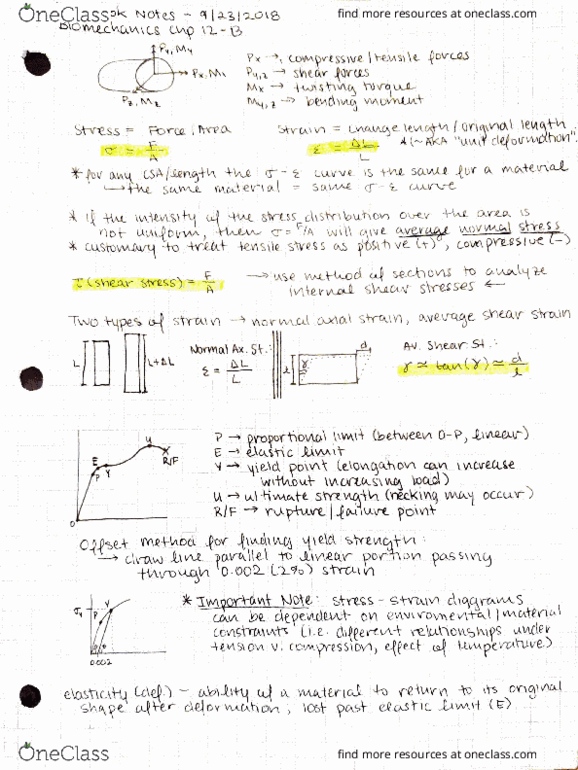 OneClass
find more resources at oneclass.com
ok Notes - 9/23/2018
Biomechanics Chp 12-13
Py, My
Px, Mx
Pz, Mz
Px → compressive/tensile forces
Py,z → shear forces
Mx → twisting torque
My,z → bending moment
Stress = Force/Area
Strain = change length/original length
σ = F/A
ε = ΔL/L
*(~AKA "unit deformation")
* for any CSA/length the σ-ε curve is the same for a material
→ the same material = same σ-ε curve
* if the intensity of the stress distribution over the area is
not uniform, then σ = F/A will give average normal stress
* customary to treat tensile stress as positive (+), compressive (-)
τ (shear stress) = F/A
→ use method of sections to analyze
internal shear stresses ←
Two types of strain → normal axial strain, average shear strain
L
L+ΔL
Normal Ax. St.:
ε = ΔL/L
l
γ
d
Av. Shear St.:
γ ≈ tan(γ) ≈ d/l
E
P
Y
U
R/F
0
P → proportional limit (between 0-P, linear)
E → elastic limit
Y → yield point (elongation can increase
without increasing load)
U → ultimate strength (necking may occur)
R/F → rupture/failure point
Offset method for finding yield strength:
→ draw line parallel to linear portion passing
through 0.002 (2%) strain
σy
P
Y
0.002
* Important Note: stress-strain diagrams
can be dependent on enviromental/material
constraints (i.e. different relationships under
tension v. compression, effect of temperature)
elasticity (def.) - ability of a material to return to its original
shape after deformation, lost past elastic limit (E)
OneClass
find more resources at oneclass.com